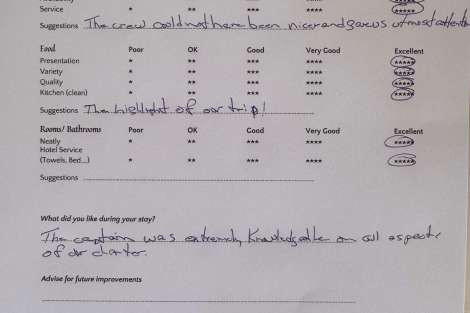 Service * ** *** **** *****
Suggestions The crew could not have been nicer and gave us utmost attention
Food Poor OK Good Very Good Excellent
Presentation * ** *** **** *****
Variety * ** *** **** *****
Quality * ** *** **** *****
Kitchen (clean) * ** *** **** *****
Suggestions The highlight of our trip!
Rooms/ Bathrooms Poor OK Good Very Good Excellent
Neatly * ** *** **** *****
Hotel Service
(Towels, Bed...) * ** *** **** *****
Suggestions
What did you like during your stay?
The captain was extremely knowledgeable on all aspects
of our charter.
Advise for future improvements